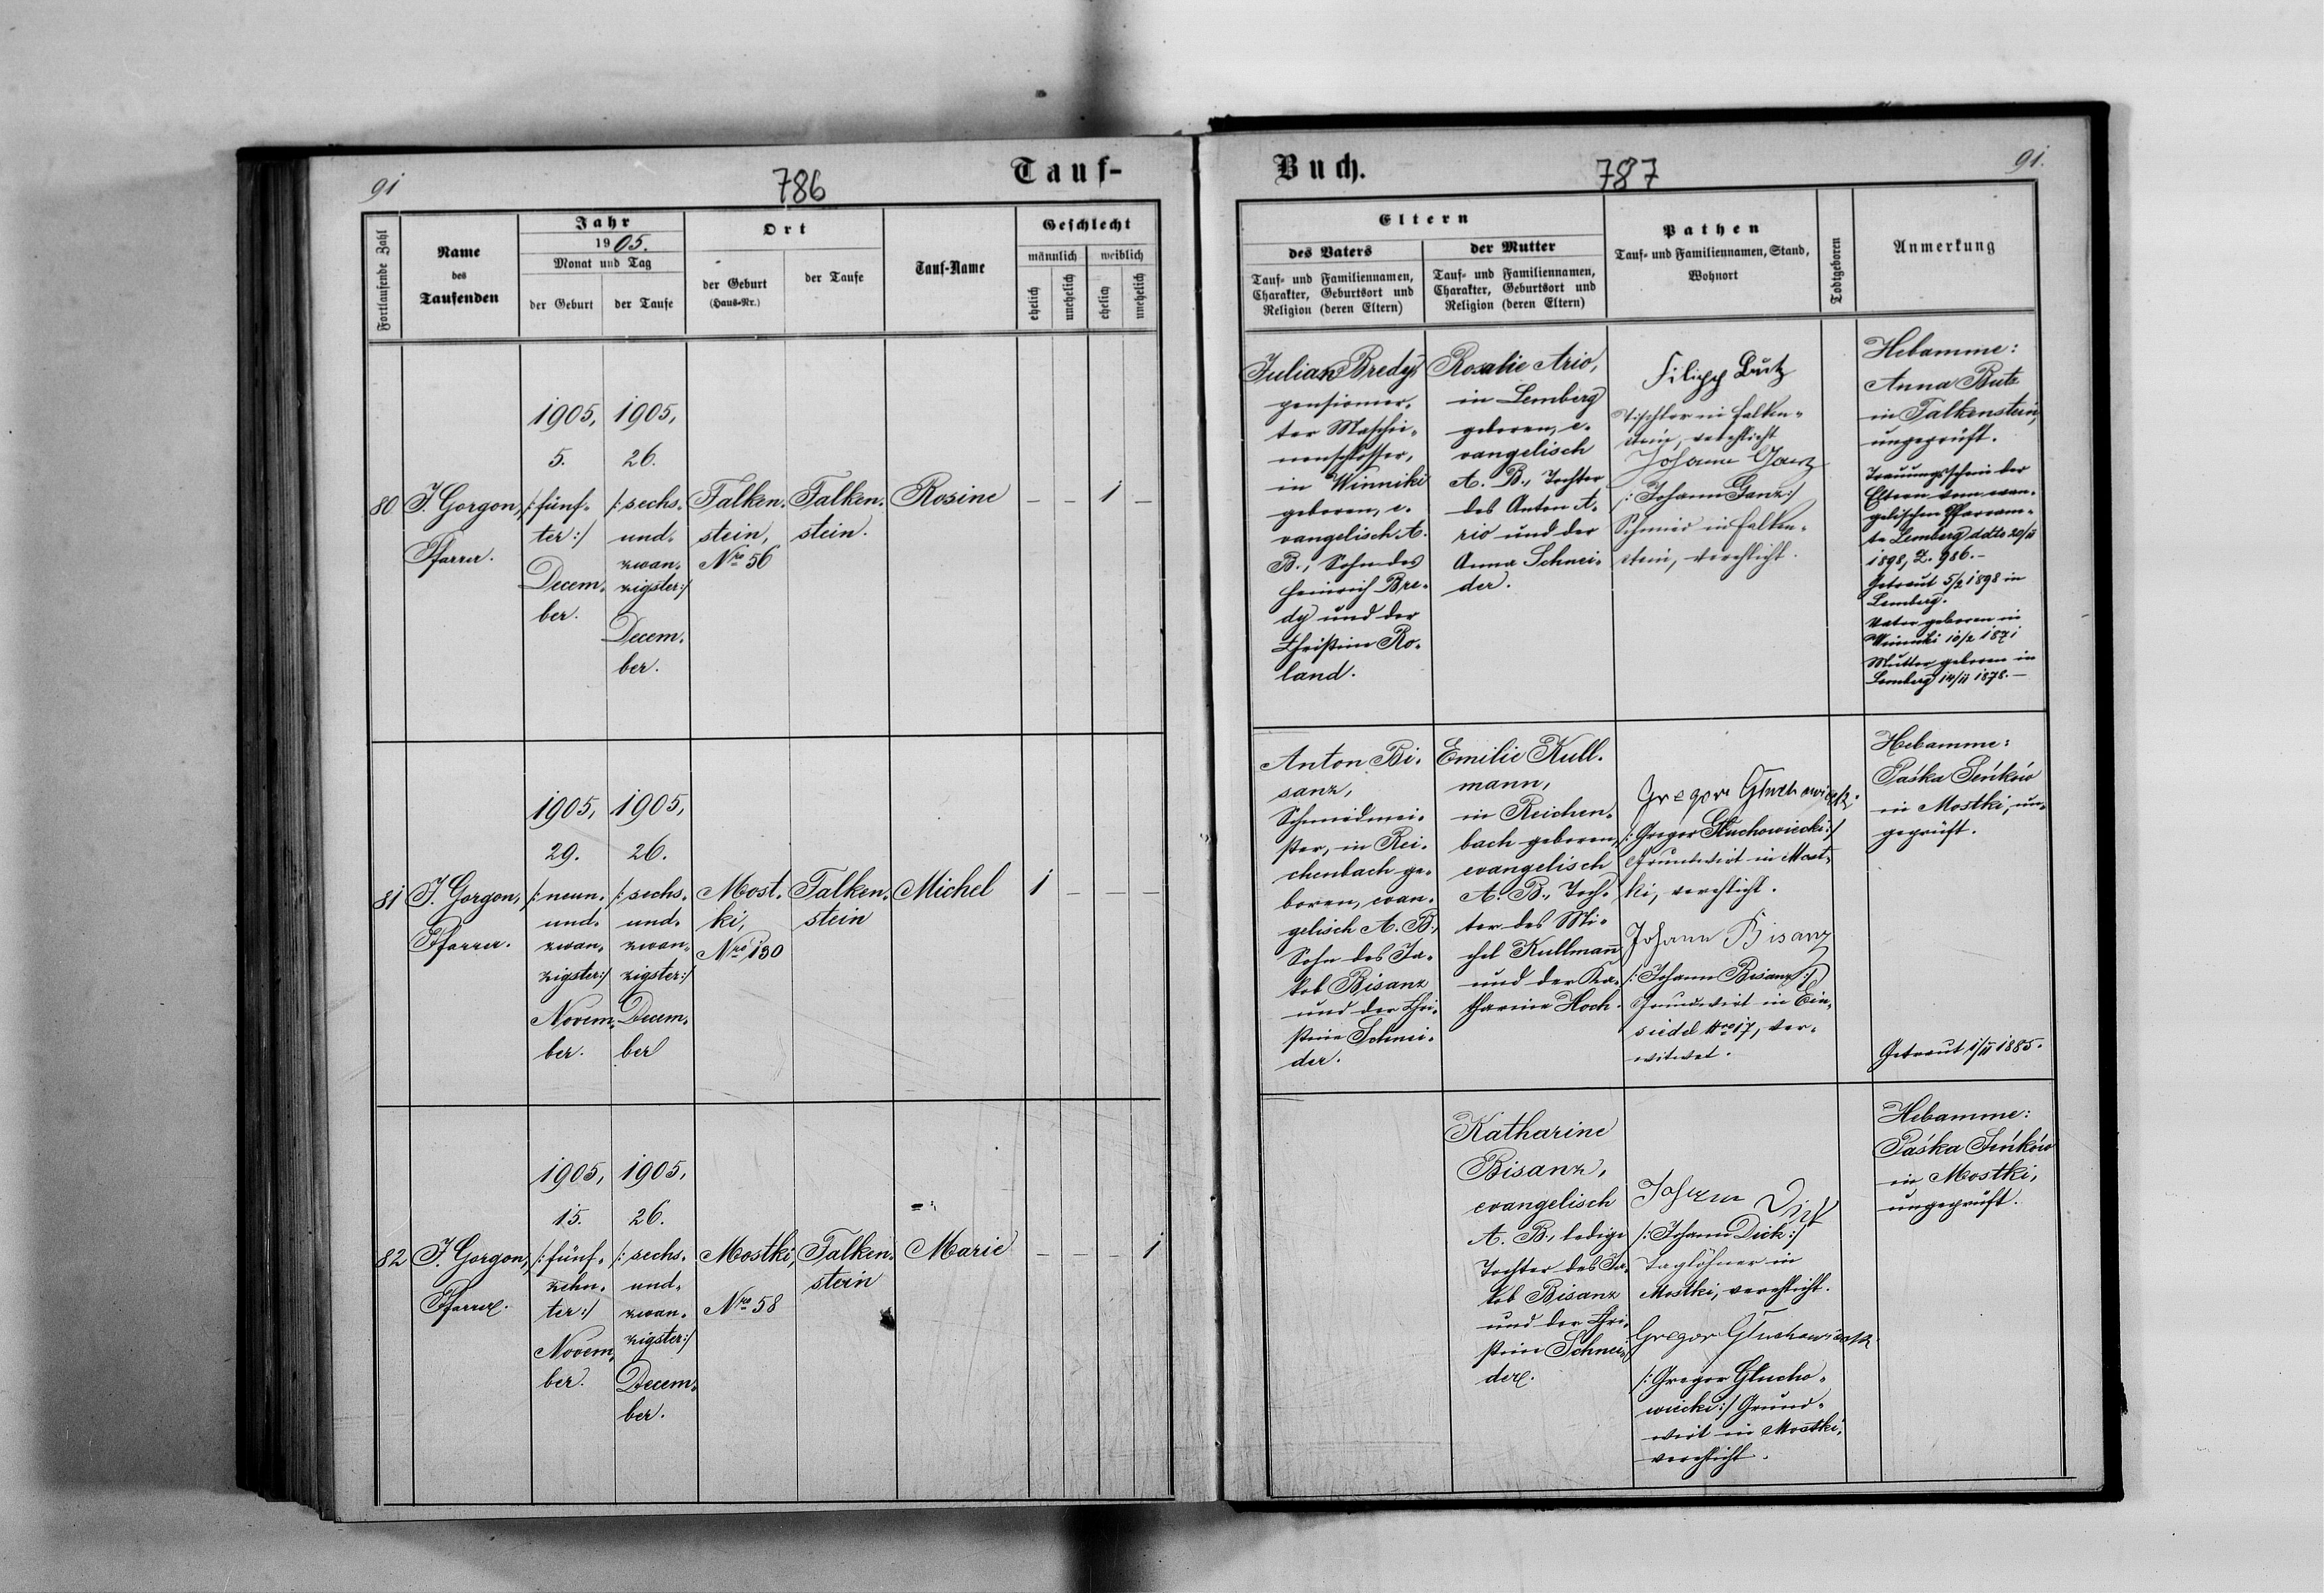 91
786
Tauf-
Fortlaufende Zahl
Name
des
Taufenden
Jahr
1905.
Monat und Tag
der Geburt
der Taufe
Ort
der Geburt
(Haus-Nr.)
der Taufe
Tauf-Name
Geschlecht
männlich
weiblich
ehelich
unehelich
ehelich
unehelich
80
J. Gorgon,
Pfarrer.
1905,
5.
/: fünf-
ter :/
Decem-
ber.
1905,
26.
/: sechs-
und-
zwan-
zigster :/
Decem-
ber.
Falken-
stein,
Nro 56
Falken-
stein.
Rosine
– – 1 –
81
J. Gorgon,
Pfarrer.
1905,
29.
/: neun-
und-
zwan-
zigster :/
Novem-
ber.
1905,
26.
/: sechs-
und-
zwan-
zigster :/
Decem-
ber
Most-
ki,
Nro 130
Falken-
stein
Michel
1 – – –
82
J. Gorgon,
Pfarrer.
1905,
15.
/: fünf-
zehn-
ter :/
Novem-
ber.
1905,
26.
/: sechs-
und-
zwan-
zigster :/
Decem-
ber.
Mostki,
Nro 58
Falken-
stein
Marie
– – – 1
Buch.
787
91.
Eltern
des Vaters
Tauf- und Familiennamen,
Charakter, Geburtsort und
Religion (deren Eltern)
der Mutter
Tauf- und Familiennamen,
Charakter, Geburtsort und
Religion (deren Eltern)
Pathen
Tauf- und Familiennamen, Stand,
Wohnort
Todtgeboren
Anmerkung
Julian Bredy,
pensionier-
ter Maschi-
nenschlosser,
in Winniki
geboren, e-
vangelisch A.
B., Sohn des
Heinrich Bre-
dy und der
Christine Ro-
land.
Rosalie Ario,
in Lemberg
geboren, e-
vangelisch
A. B., Tochter
des Anton A-
rio und der
Anna Schnei-
der.
Filipp Butz
Tischler in Falken-
stein, verehlicht
Johann Ganz
/: Johann Ganz :/
Schmied in Falken-
stein, verehlicht.
Hebamme:
Anna Butz
in Falkenstein,
ungeprüft.
Trauungsschein der
Eltern vom evan-
gelischen Pfarram-
te Lemberg ddto 20/II
1898, Z. 986.-
Getraut 5/2 1898 in
Lemberg.
Vater geboren in
Winniki 10/2 1871
Mutter geboren in
Lemberg 14/II 1878.-
Anton Bi-
sanz,
Schmiedmei-
ster, in Rei-
chenbach ge-
boren, evan-
gelisch A. B.,
Sohn des Ja-
kob Bisanz
und der Chri-
stine Schnei-
der.
Emilie Kull-
mann,
in Reichen-
bach geboren,
evangelisch
A. B., Toch-
ter des Mi-
chel Kullmann
und der Ka-
tharina Hoch.
Gregor Głuchowiecki
/: Gregor Głuchowiecki :/
Grundwirt in Most-
ki, verehlicht.
Johann Bisanz
/: Johann Bisanz :/
Grundwirt in Ein-
siedel Nro 17, ver-
witwet.
Hebamme:
Paśka Seńków
in Mostki, un-
geprüft.
Getraut 1/II 1885.
Katharine
Bisanz,
evangelisch
A. B., ledige
Tochter des Ja-
kob Bisanz
und der Chri-
stine Schnei-
der.
Johann Dick
/: Johann Dick :/
Taglöhner in
Mostki, verehlicht.
Gregor Głuchowiecki
/: Gregor Głucho-
wiecki :/ Grund-
wirt in Mostki,
verehlicht.
Hebamme:
Paśka Seńków
in Mostki,
ungeprüft.